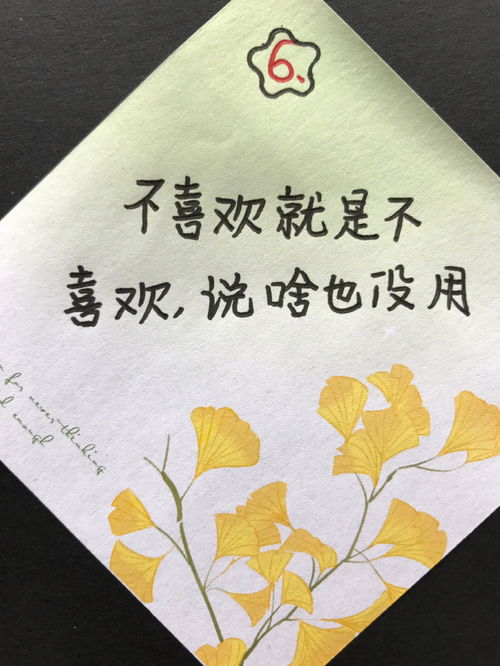 6.
不喜欢就是不
喜欢,说啥也没用
for never thinking
enough